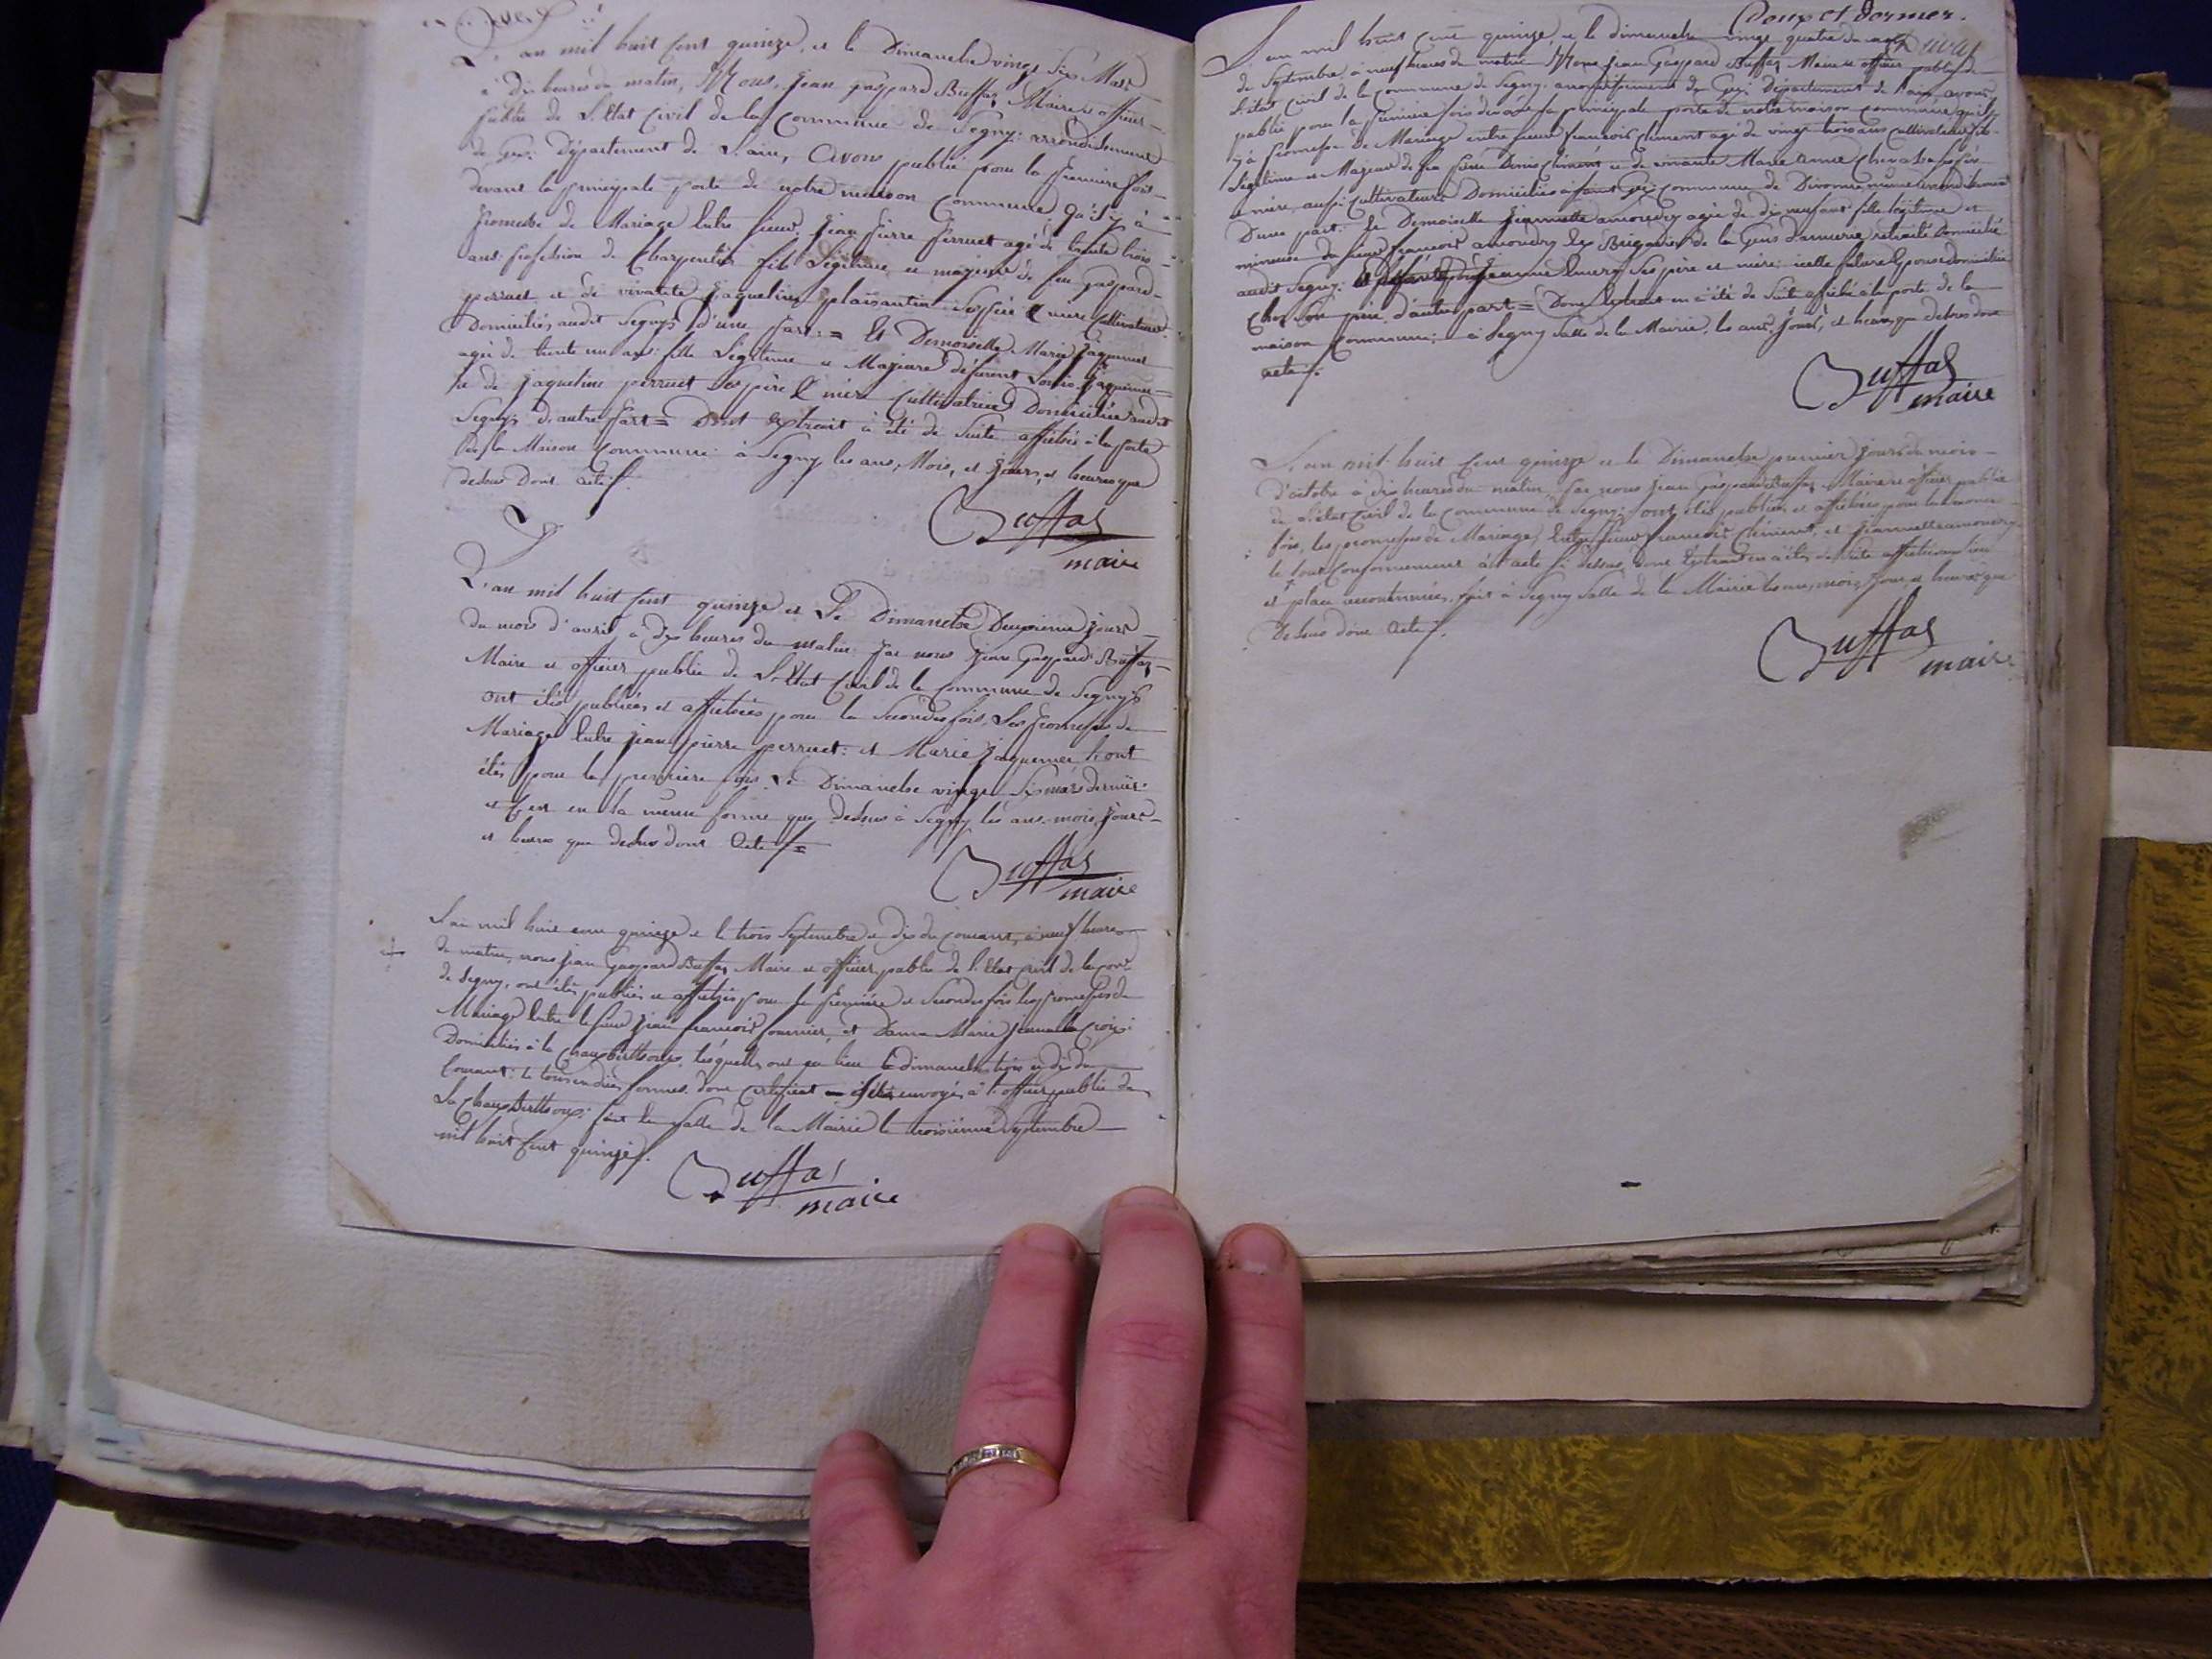 L'an mil huit cent quinze, et le Dimanche vingt six Mars
à dix heures du matin, Nous, Jean gaspard Buffaz, Maire et officier
public de L'Etat Civil de la Commune de Segny: arrondissement
de Gex: Département de L'ain, Avons publié pour la premiere fois
devant la principale porte de notre maison Commune, qu'il y à
promesse de Mariage Entre Sieur Jean pierre perruet agé de trente trois
ans: profession de Charpentier fils Légitime et majeur de feu gaspard
perruet et de vivante Jaqueline plaisantin Ses père & mere Cultivateurs
Domiciliés audit Segny d'une part: = Et Demoiselle Marie Jaquemet
agée de trente un ans: fille Légitime et Majeure défunt Louis Jaquemet
et de Jaqueline perruet Ses père & mère Cultivatrice Domiciliée audit
Segny D'autre part = Dont Extrait à été de Suite affiché à la porte
De la Maison Commune: à Segny les ans, Mois, et Jours, et heures que
dessus Dont Acte.
Buffaz
maire
L'an mil huit Cent quinze et Le Dimanche Deuxieme Jour
du mois d'avril à dix heures du matin par nous Jean Gaspard Buffaz
Maire et officier public de L'Etat Civil de la Commune de Segny
ont étés publiées et affichées pour la Seconde fois, Les promesses de
Mariage Entre Jean pierre perruet: et Marie Jaquemet l'ont
étés pour la premiere fois Le Dimanche vingt Six mars dernier
et C'est en la meme forme que Dessus à Segny les ans. mois, Jours
et heures que dessus dont Acte =
Buffaz
maire
L'an mil huit cent quinze et le trois Septembre et dix du Courant, à neuf heures
du matin, nous Jean Gaspard Buffaz Maire et officier public de l'Etat Civil de la Com.
de Segny, ont étés publiées et affichées pour la premiére et Secondes fois les promesses de
Mariage Entre le Sieur Jean francois fournier, et Dame Marie Jeannette
Domiciliés à la lesquelles ont eu lieu le dimanche trois et dix du
Courant: le tout en dües formes. dont Certificat envoyé à l'officier public de
La fait En Salle de la Mairie le troisième Septembre
mil huit Cent quinze.
Buffaz
maire
Doux et dernier.
L'an mil huit cent quinze, et le dimanche vingt quatre du
de Septembre à neuf heures du matin Nous Jean Gaspard Buffaz Maire et officier public de
L'état Civil de la Commune de Segny: arrondissement de Gex: Département de l'ain, avons
publié pour la premiere fois devant la principale porte de notre maison Commune qu'il
y à promesse de Mariage entre Sieur francois Clement agé de vingt trois ans Cultivateur fils
Légitime et Majeur de feu pierre Denis Clement et de vivante Marie Anne Chevalier Ses père
et mère, aussi Cultivateurs Domiciliés à Commune de Divonne, même arrondissement
D'une part: Et Demoiselle Jeannette amoudry agée de dix neuf ans: fille légitime et
mineure du Sieur francois amoudry Ex Brigadier de la Gens d'armerie retraité Domicilié
audit Segny: et Jeanne Emery Ses père et mère: icelle future Epouse domiciliée
Chez Son père d'autre part = Dont Extrait en à été de Suite affiché à la porte de la
maison Commune; à Segny Salle de la Mairie, les ans, Jours, et heures que dessus dont
acte.
Buffaz
maire
L'an mil huit Cent quinze et le Dimanche premier Jour du mois
d'octobre à dix heures du matin par nous Jean Gaspard Buffaz Maire et officier public
de l'état Civil de la Commune de Segny; ont étés publiées et affichées pour la Seconde
fois, les promesses de Mariage, Entre Sieur francois Clément, et Jeannette amoudry
le tout Conformement à l'acte Ci dessus, dont Extrait en à étés de suite affiché au lieu
et place accoutumées, fait à Segny Salle de la Mairie les ans, mois, Jour et heures que
Dessus dont Acte.
Buffaz
maire